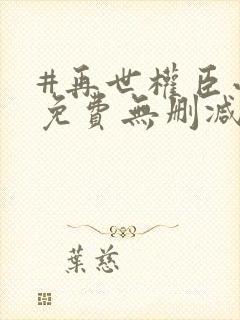 #再世權臣小
免費無删減
葉慈